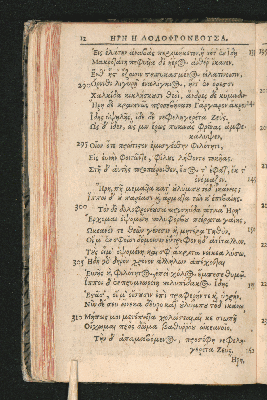 12 ΗΡΗ Η ΔΟΛΟΦΡΟΝΕΟΥΣΑ.
Εἰς ἐλάτην ἀναβὰς περιμήκετον, ἣ τότ' ἐν Ἴδῃ
Μακροτάτη πεφυυῖα δι' ἠέρος αἰθέρ' ἵκανεν.
Ἔνθ' ἧστ' ὄζοισιν πεπυκασμένος εἰλατίνοισιν,
290 Ὄρνιθι λιγυρῇ ἐναλίγκιος, ἥν τ' ἐν ὄρεσσι
Χαλκίδα κικλήσκουσι θεοί, ἄνδρες δὲ κύμινδιν.
Ἥρη δὲ κραιπνῶς προσεβήσατο Γάργαρον ἄκρον
Ἴδης ὑψηλῆς, ἴδε δὲ νεφεληγερέτα Ζεύς.
Ὡς δ' ἴδεν, ὥς μιν ἔρως πυκινὰς φρένας ἀμφε-
κάλυψεν,
295 Οἷον ὅτε πρῶτόν περ ἐμισγέσθην φιλότητι,
Εἰς εὐνὴν φοιτῶντε, φίλους λήθοντε τοκῆας.
Στῆ δ' αὐτῆς προπάροιθεν, ἔπος τ' ἔφατ', ἔκ τ'
ὀνόμαζεν,
Ἥρη, πῆ μεμαυῖα κατ' οὐλύμπου τόδ' ἱκάνεις;
Ἵπποι δ' οὐ παρέασι καὶ ἅρματα τῶν κ' ἐπιβαίης.
300 Τὸν δὲ δολοφρονέουσα προσηύδα πότνια Ἥρη·
Ἔρχομαι ὀψομένη πολυφόρβου πείρατα γαίης,
Ὠκεανόν τε θεῶν γένεσιν καὶ μητέρα Τηθύν,
Οἵ μ' ἐν σφοῖσι δόμοισιν ἐΰτρεφον ἠδ' ἀτίταλλον.
Τοὺς εἶμ' ὀψομένη, καί σφ' ἄκριτα νείκεα λύσω.
305 Ἤδη γὰρ δηρὸν χρόνον ἀλλήλων ἀπέχονται
Εὐνῆς καὶ φιλότητος, ἐπεὶ χόλος ἔμπεσε θυμῷ.
Ἵπποι δ' ἐν πρυμνωρείῃ πολυπίδακος Ἴδης
Ἑστᾶσ', οἵ μ' οἴσουσιν ἐπὶ τραφερήν τε καὶ ὑγρήν.
Νῦν δὲ σεῦ εἵνεκα δεῦρο κατ' οὐλύμπου τόδ' ἱκάνω,
310 Μήπως μοι μετέπειτα χολώσεαι, αἴ κε σιωπῇ
Οἴχωμαι πρὸς δῶμα βαθυρρόου ὠκεανοῖο.
Τὴν δ' ἀπαμειβόμενος, προσέφη νεφελη-
γερέτα Ζεύς,
Ἥρη,